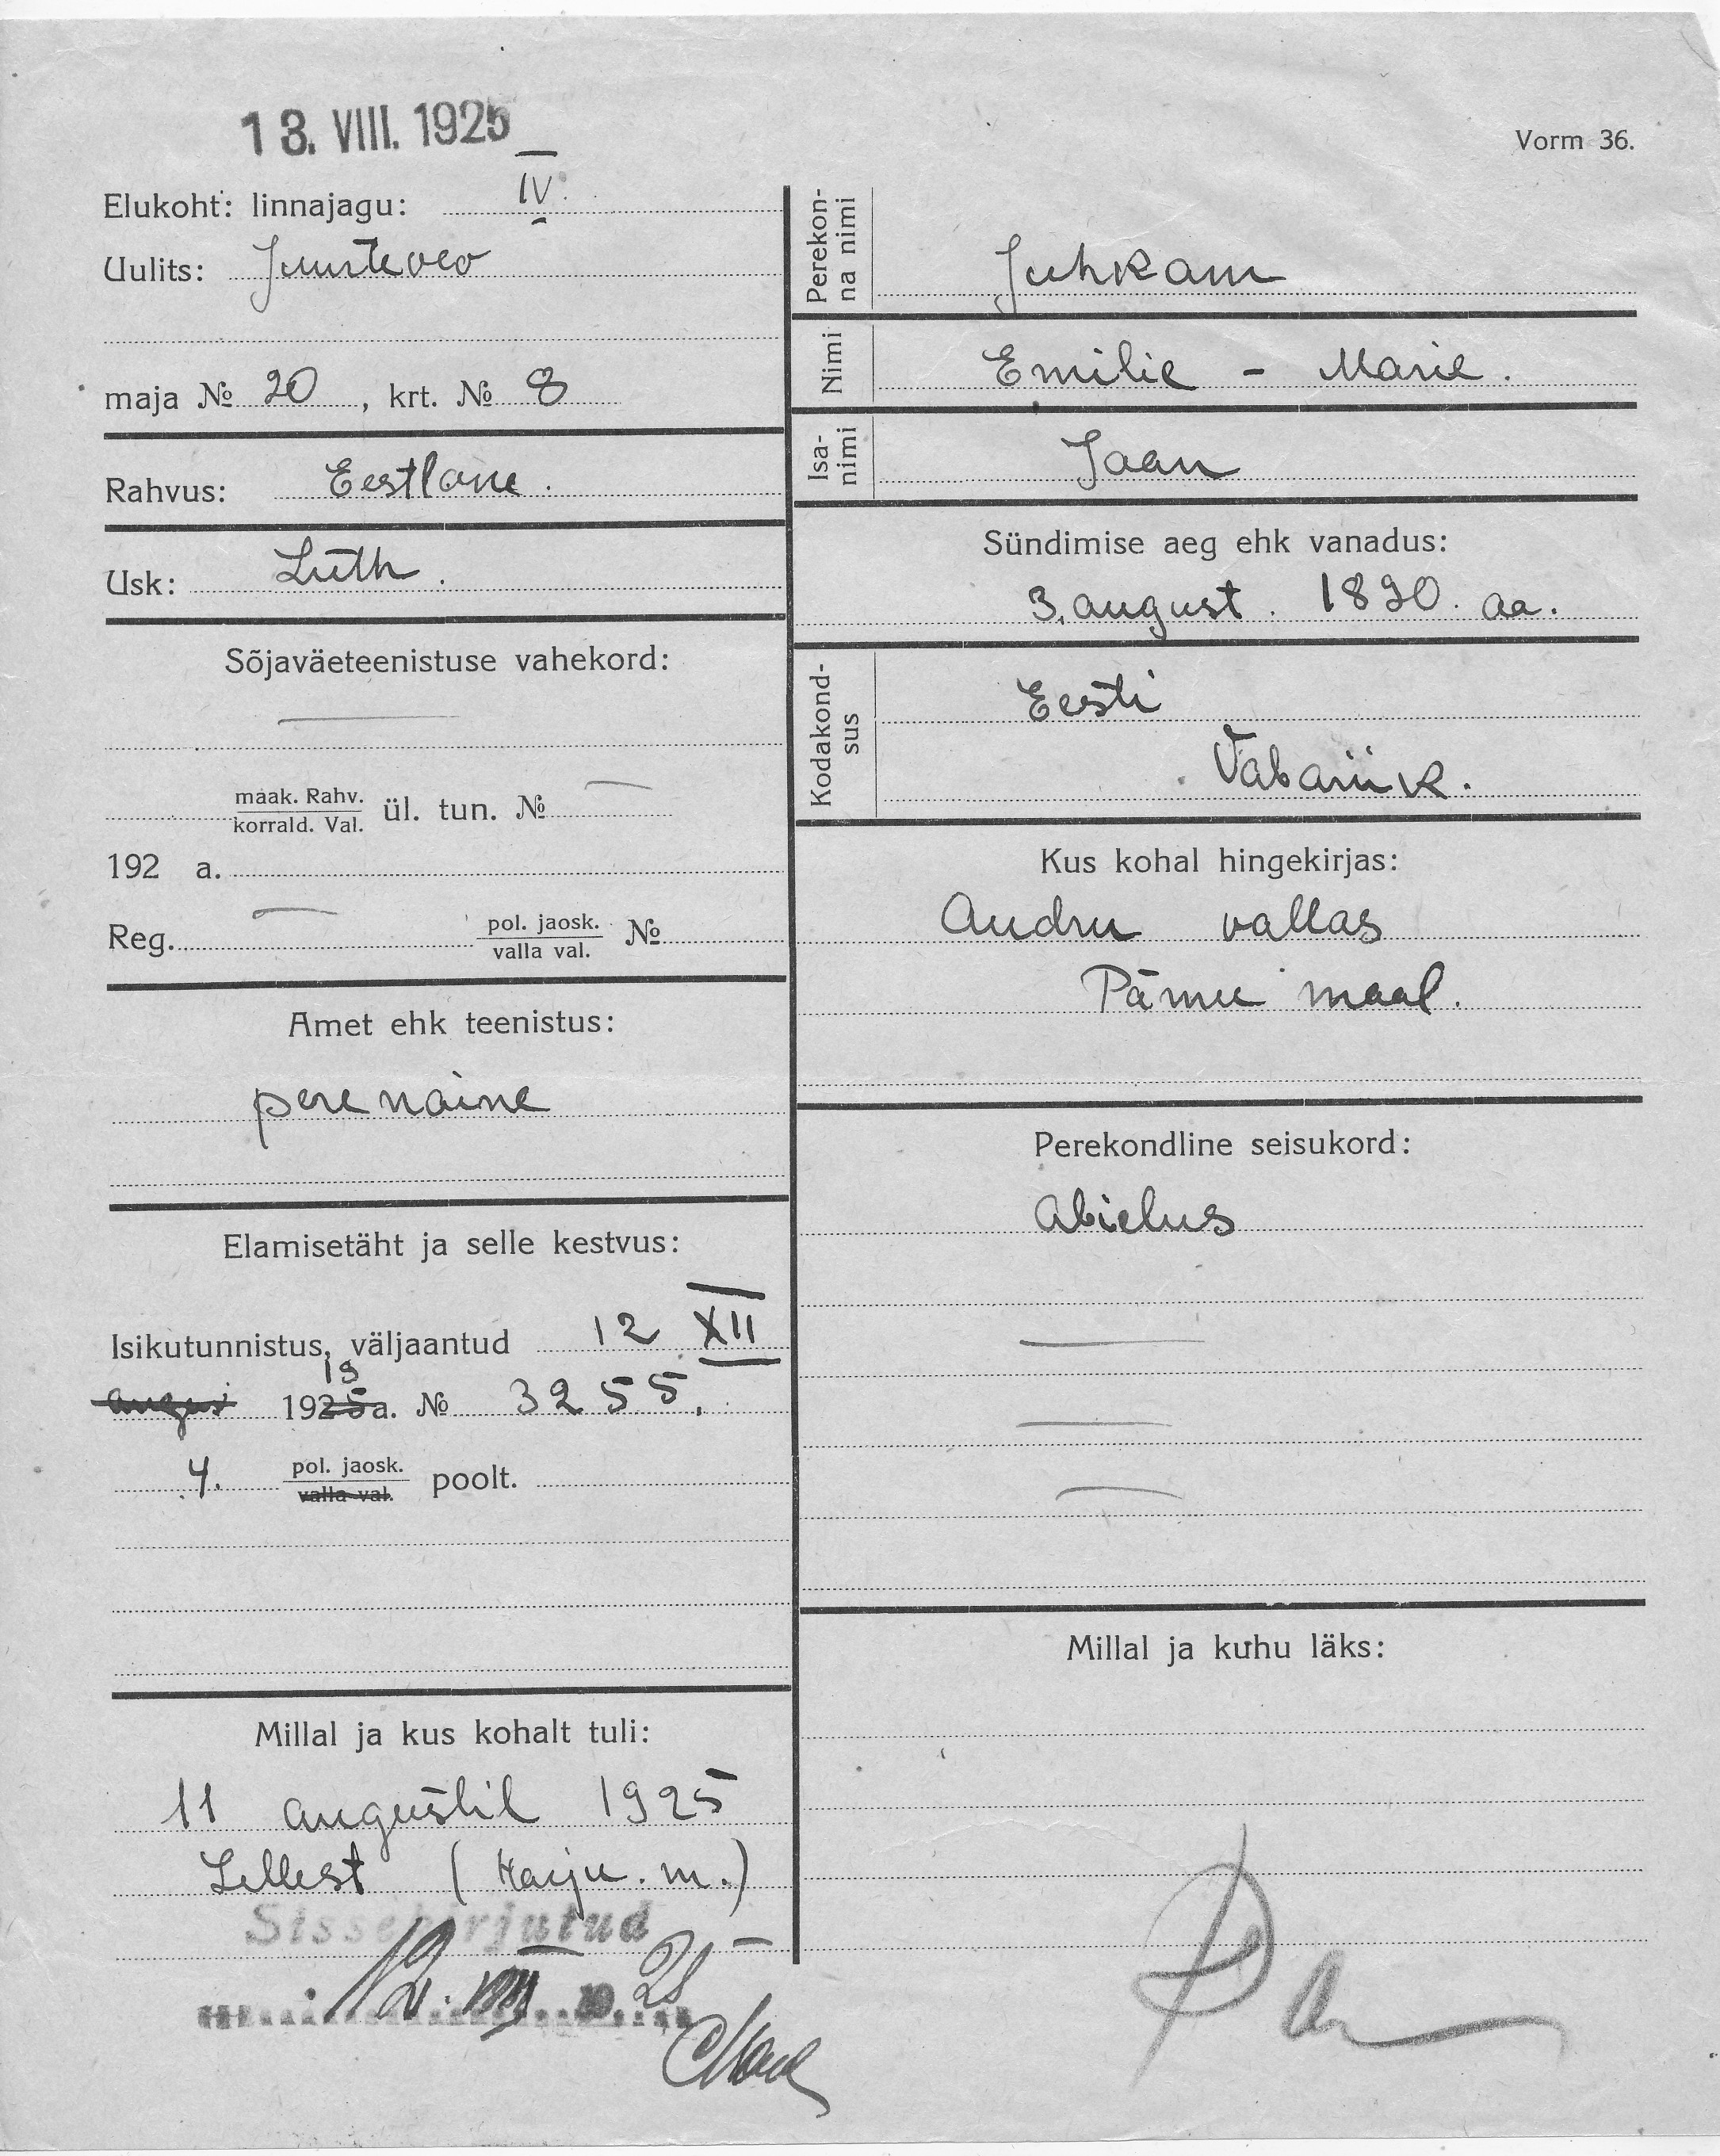 13. VIII. 1925
Vorm 36.
Elukoht: linnajagu: IV.
Uulits:
maja № 20, krt. № 8
Rahvus: Eestlane.
Usk: Luth.
Sõjaväeteenistuse vahekord:
maak. Rahv.
korrald. Val. ül. tun. №
192 a.
Reg. pol. jaosk.
valla val. №
Amet ehk teenistus:
perenaine
Elamisetäht ja selle kestvus:
Isikutunnistus, väljaantud 12 XII
19
august 1925 a. № 3255.
4. pol. jaosk.
valla val. poolt.
Millal ja kus kohalt tuli:
11 augustil 1925
Lellest (Harju. m.)
Sissekirjutud
12. VIII 19 25
Perekon-
na nimi
Juhkam
Nimi
Emilie - Marie.
Isa-
nimi
Jaan
Sündimise aeg ehk vanadus:
3. august. 1890. aa.
Kodakond-
sus
Eesti
Vabariik.
Kus kohal hingekirjas:
Audru vallas
Pärnu maal.
Perekondline seisukord:
abielus
Millal ja kuhu läks: